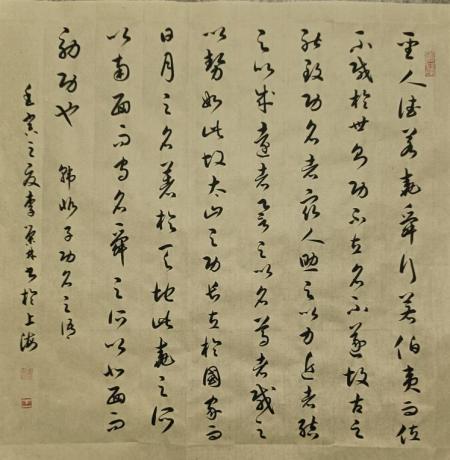 聖人德若堯舜行若伯夷而位
不載於世則功不立名不遂故古之
能致功名者眾人助之以力近者結
之以成遠者譽之以名尊者載之
以勢如此故太山之功長立於國家而
日月之名著於天地此堯之所
以南面而守名舜之所以北面而
效功也 韓非子功名之語
壬寅之夏李林書於上海